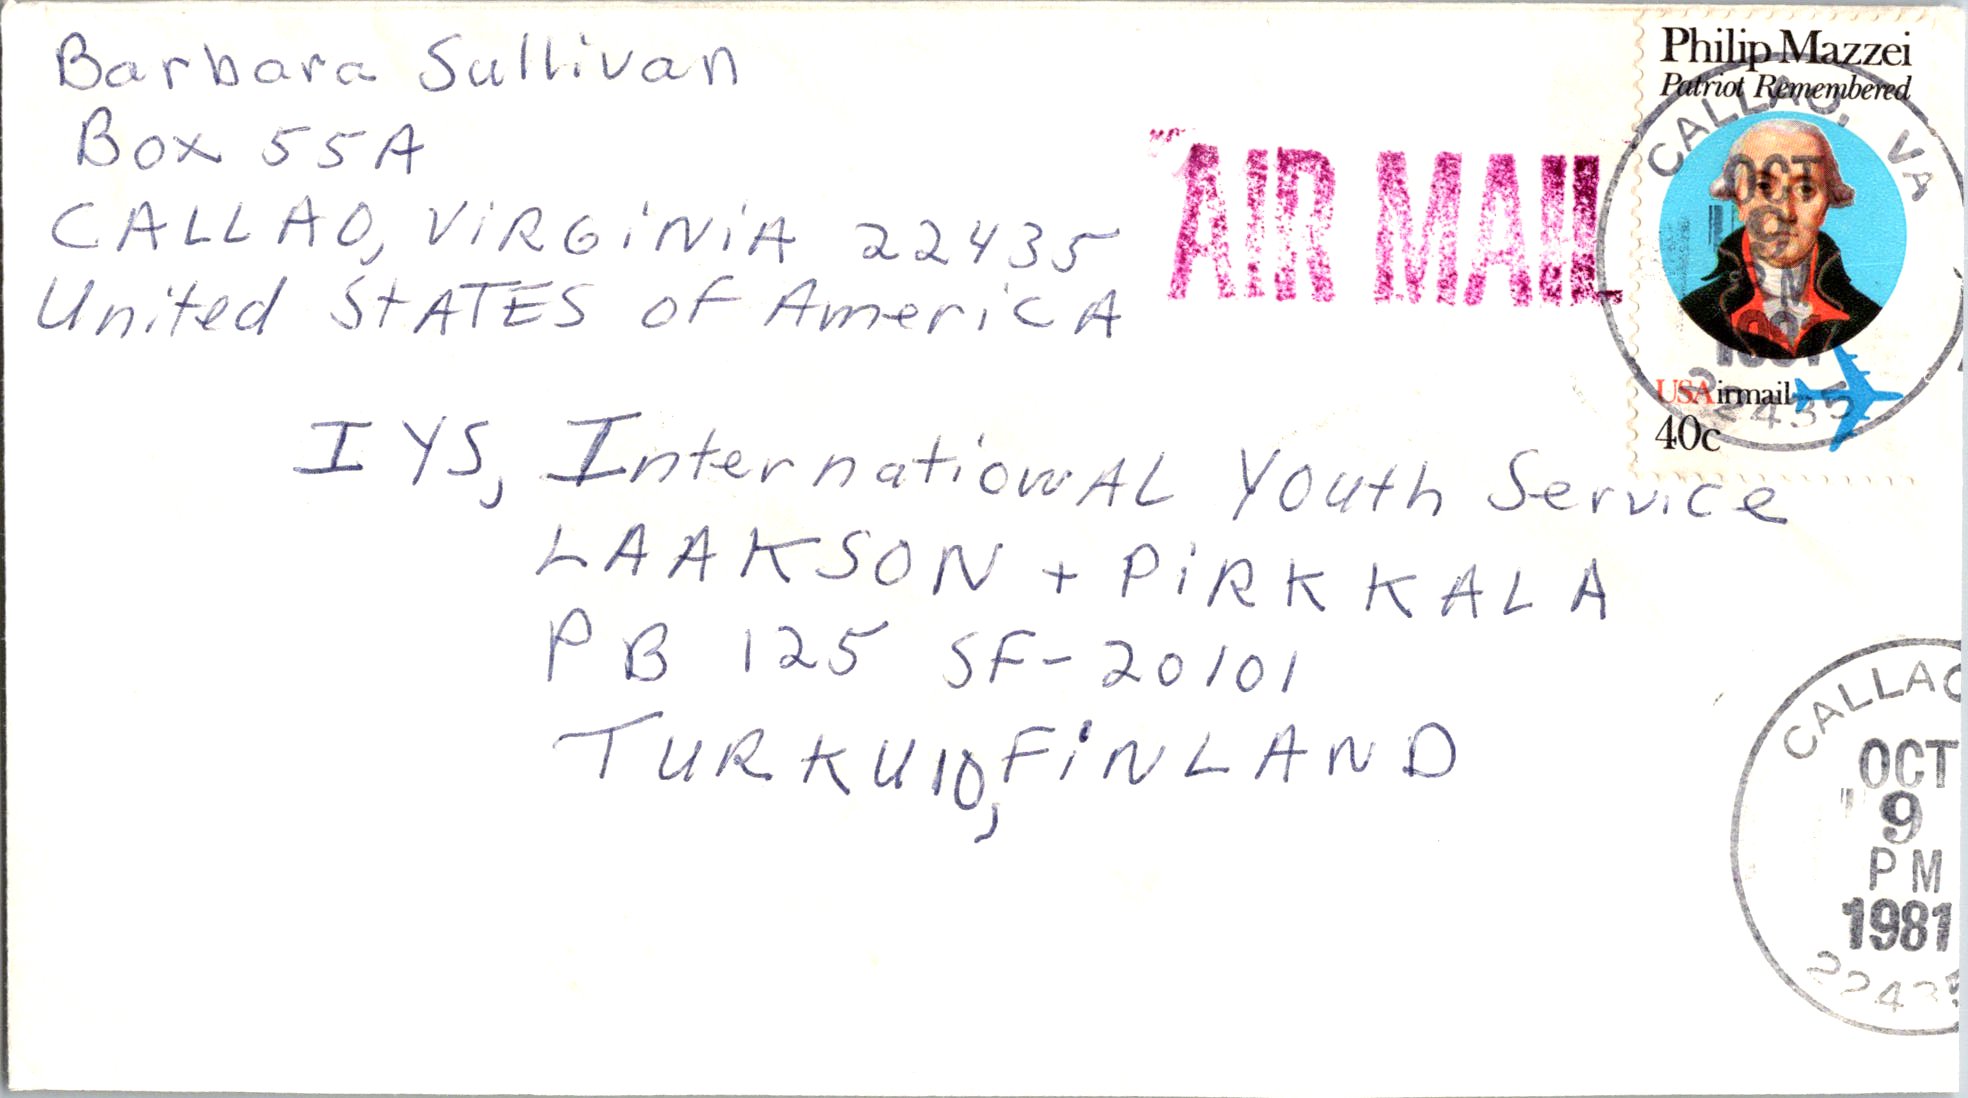 Barbara Sullivan
Box 55A
CALLAO, ViRGiNiA 22435
United StATES of AmericA
AIR MAIL
Philip Mazzei
Patriot Remembered
USAirmail
40c
CALLAO, VA
OCT
9
1981
22435
IYS, InternationAL Youth Service
LAAKSON + PiRKKALA
PB 125 SF-20101
TURKU 10, FiNLAND
CALLAO
OCT
9
PM
1981
22435